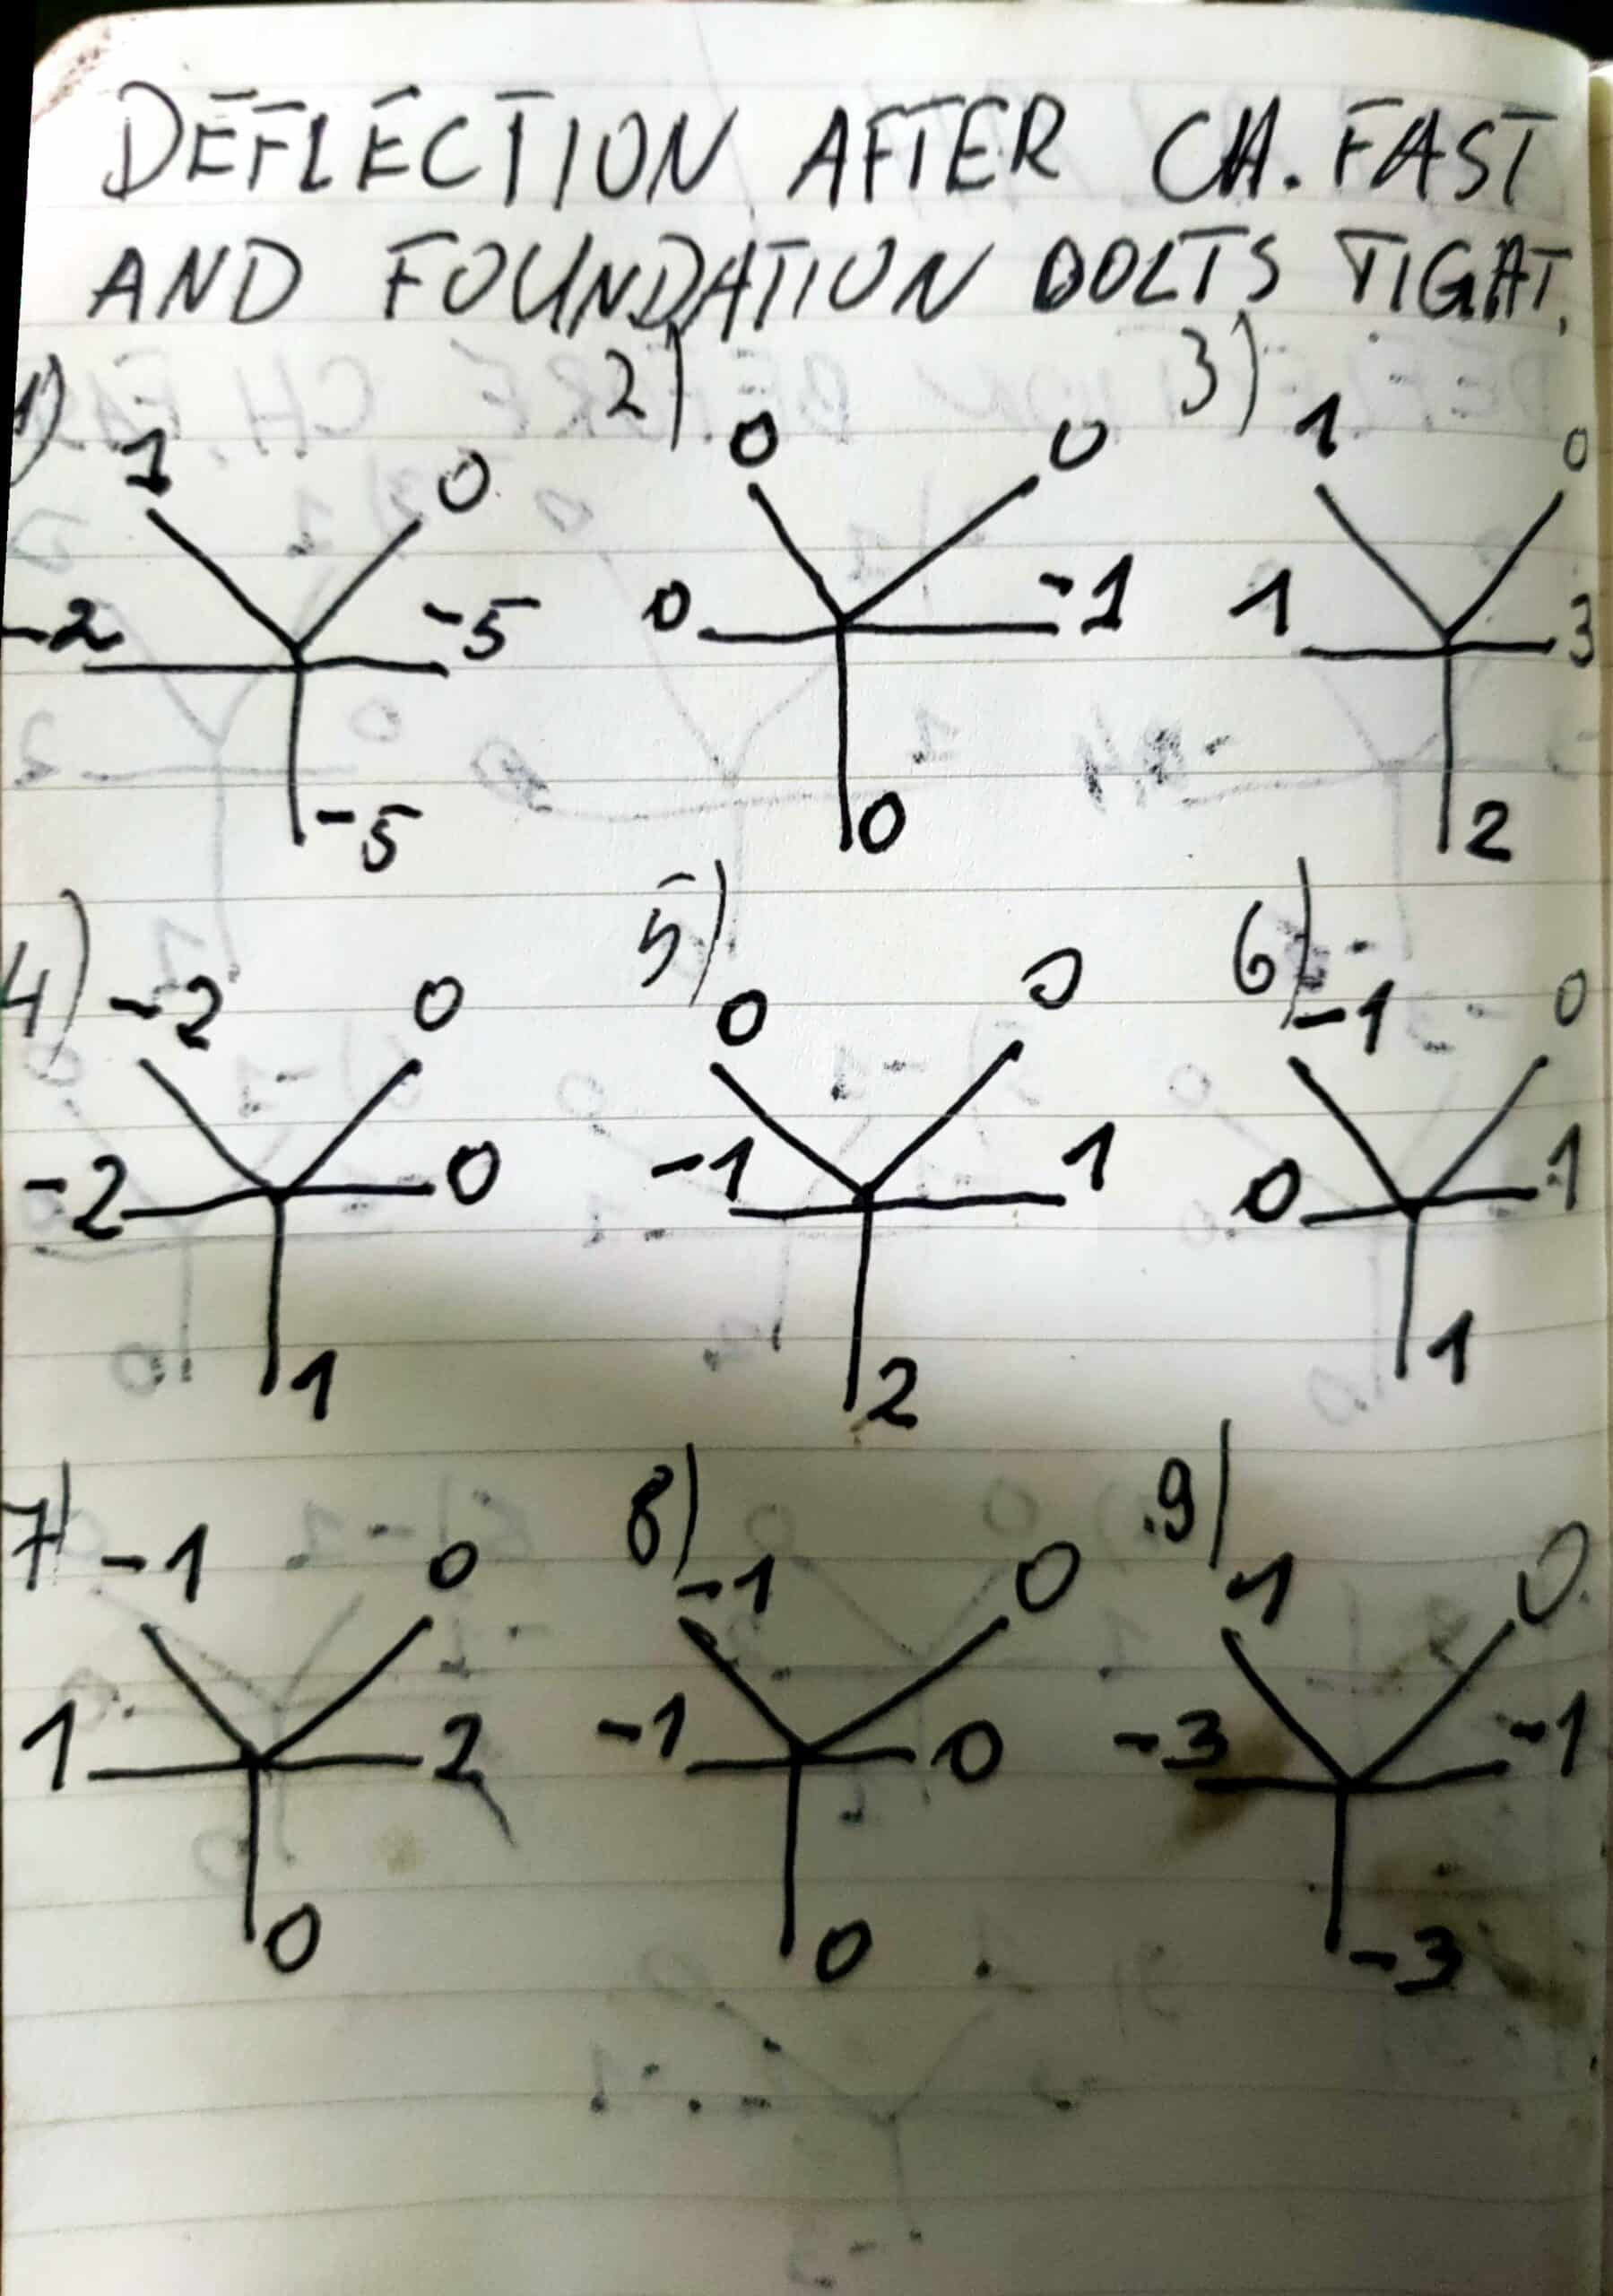 DEFLECTION AFTER CH. FAST
AND FOUNDATION BOLTS TIGHT.
1) 2) 3)
1 0 0 0 1 0
-2 -5 0 -1 1 3
-5 0 2
4) 5) 6)
-2 0 0 0 -1 0
-2 0 -1 1 0 1
1 2 1
7) 8) 9)
-1 0 -1 0 1 0
1 2 -1 0 -3 -1
0 0 -3